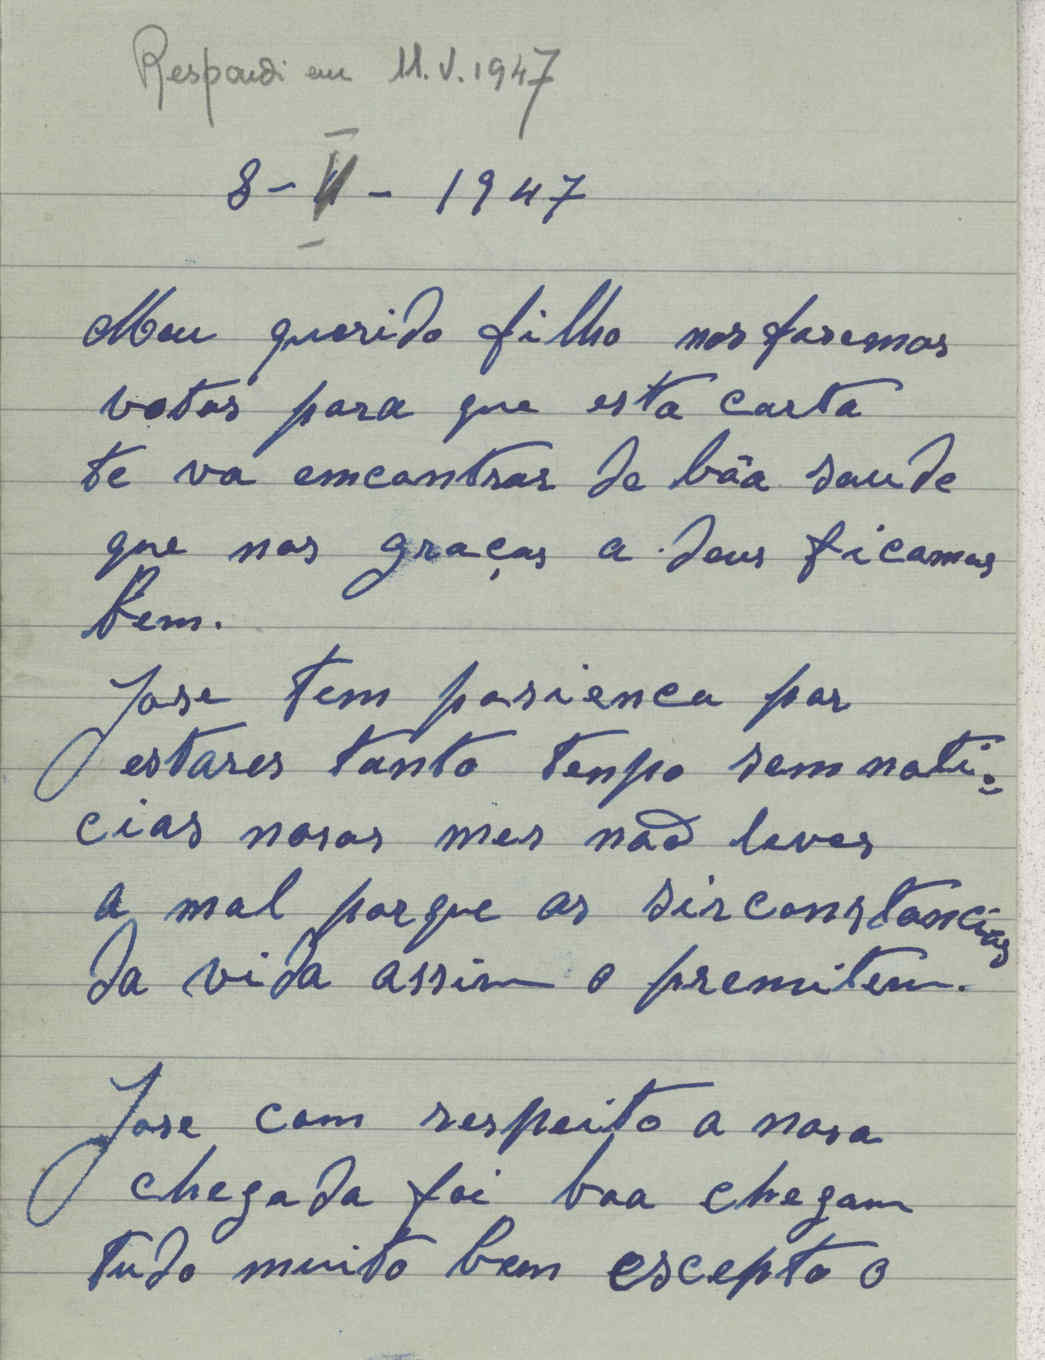 Respondi em 11.V.1947
8-II-1947
Meu querido filho nos fasemos
votos para que esta carta
te va emcontrar de bôa saude
que nos graças a deus ficamos
bem.
Jose tem pasienca por
estares tanto tenpo sem noti-
cias nosas mes não leves
a mal porque as sirconstancias
da vida assim o premitem.
Jose com respeito a nosa
chegada foi boa chegam
tudo muito bem escepto o